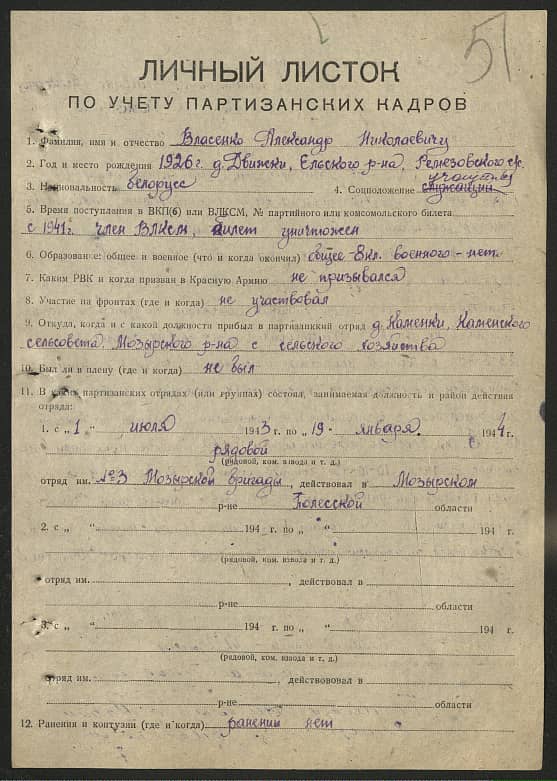 51
ЛИЧНЫЙ ЛИСТОК
ПО УЧЕТУ ПАРТИЗАНСКИХ КАДРОВ
1. Фамилия, имя и отчество Власенко Александр Николаевич
2. Год и место рождения 1926 г. д. Движки, Ельского р-на, Ремезовского с/с.
3. Национальность белорусс 4. Соцположение служащий учащийся
5. Время поступления в ВКП(б) или ВЛКСМ, № партийного или комсомольского билета
с 1941 г. член ВЛКСМ, билет уничтожен
6. Образование: общее и военное (что и когда окончил) общее 8 кл. военного - нет.
7. Каким РВК и когда призван в Красную Армию не призывался
8. Участие на фронтах (где и когда) не участвовал
9. Откуда, когда и с какой должности прибыл в партизанский отряд д. Каменки, Каменского
сельсовета. Мозырского р-на с сельского хозяйства
10. Был ли в плену (где и когда) не был
11. В каких партизанских отрядах (или группах) состоял, занимаемая должность и район действия
отряда:
1. с „ 1 " июля 1943 г. по „ 19 " января 1944 г.
рядовой
(рядовой, ком. взвода и т. д.)
отряд им. №3 Мозырской бригады, действовал в Мозырском
р-не Полесской области
2. с „ " 194 г. по „ " 194 г.
(рядовой, ком. взвода и т. д.)
отряд им. , действовал в
р-не области
3. с „ " 194 г. по „ " 194 г.
(рядовой, ком. взвода и т. д.)
отряд им. , действововал в
р-не области
12. Ранения и контузии (где и когда) ранений нет